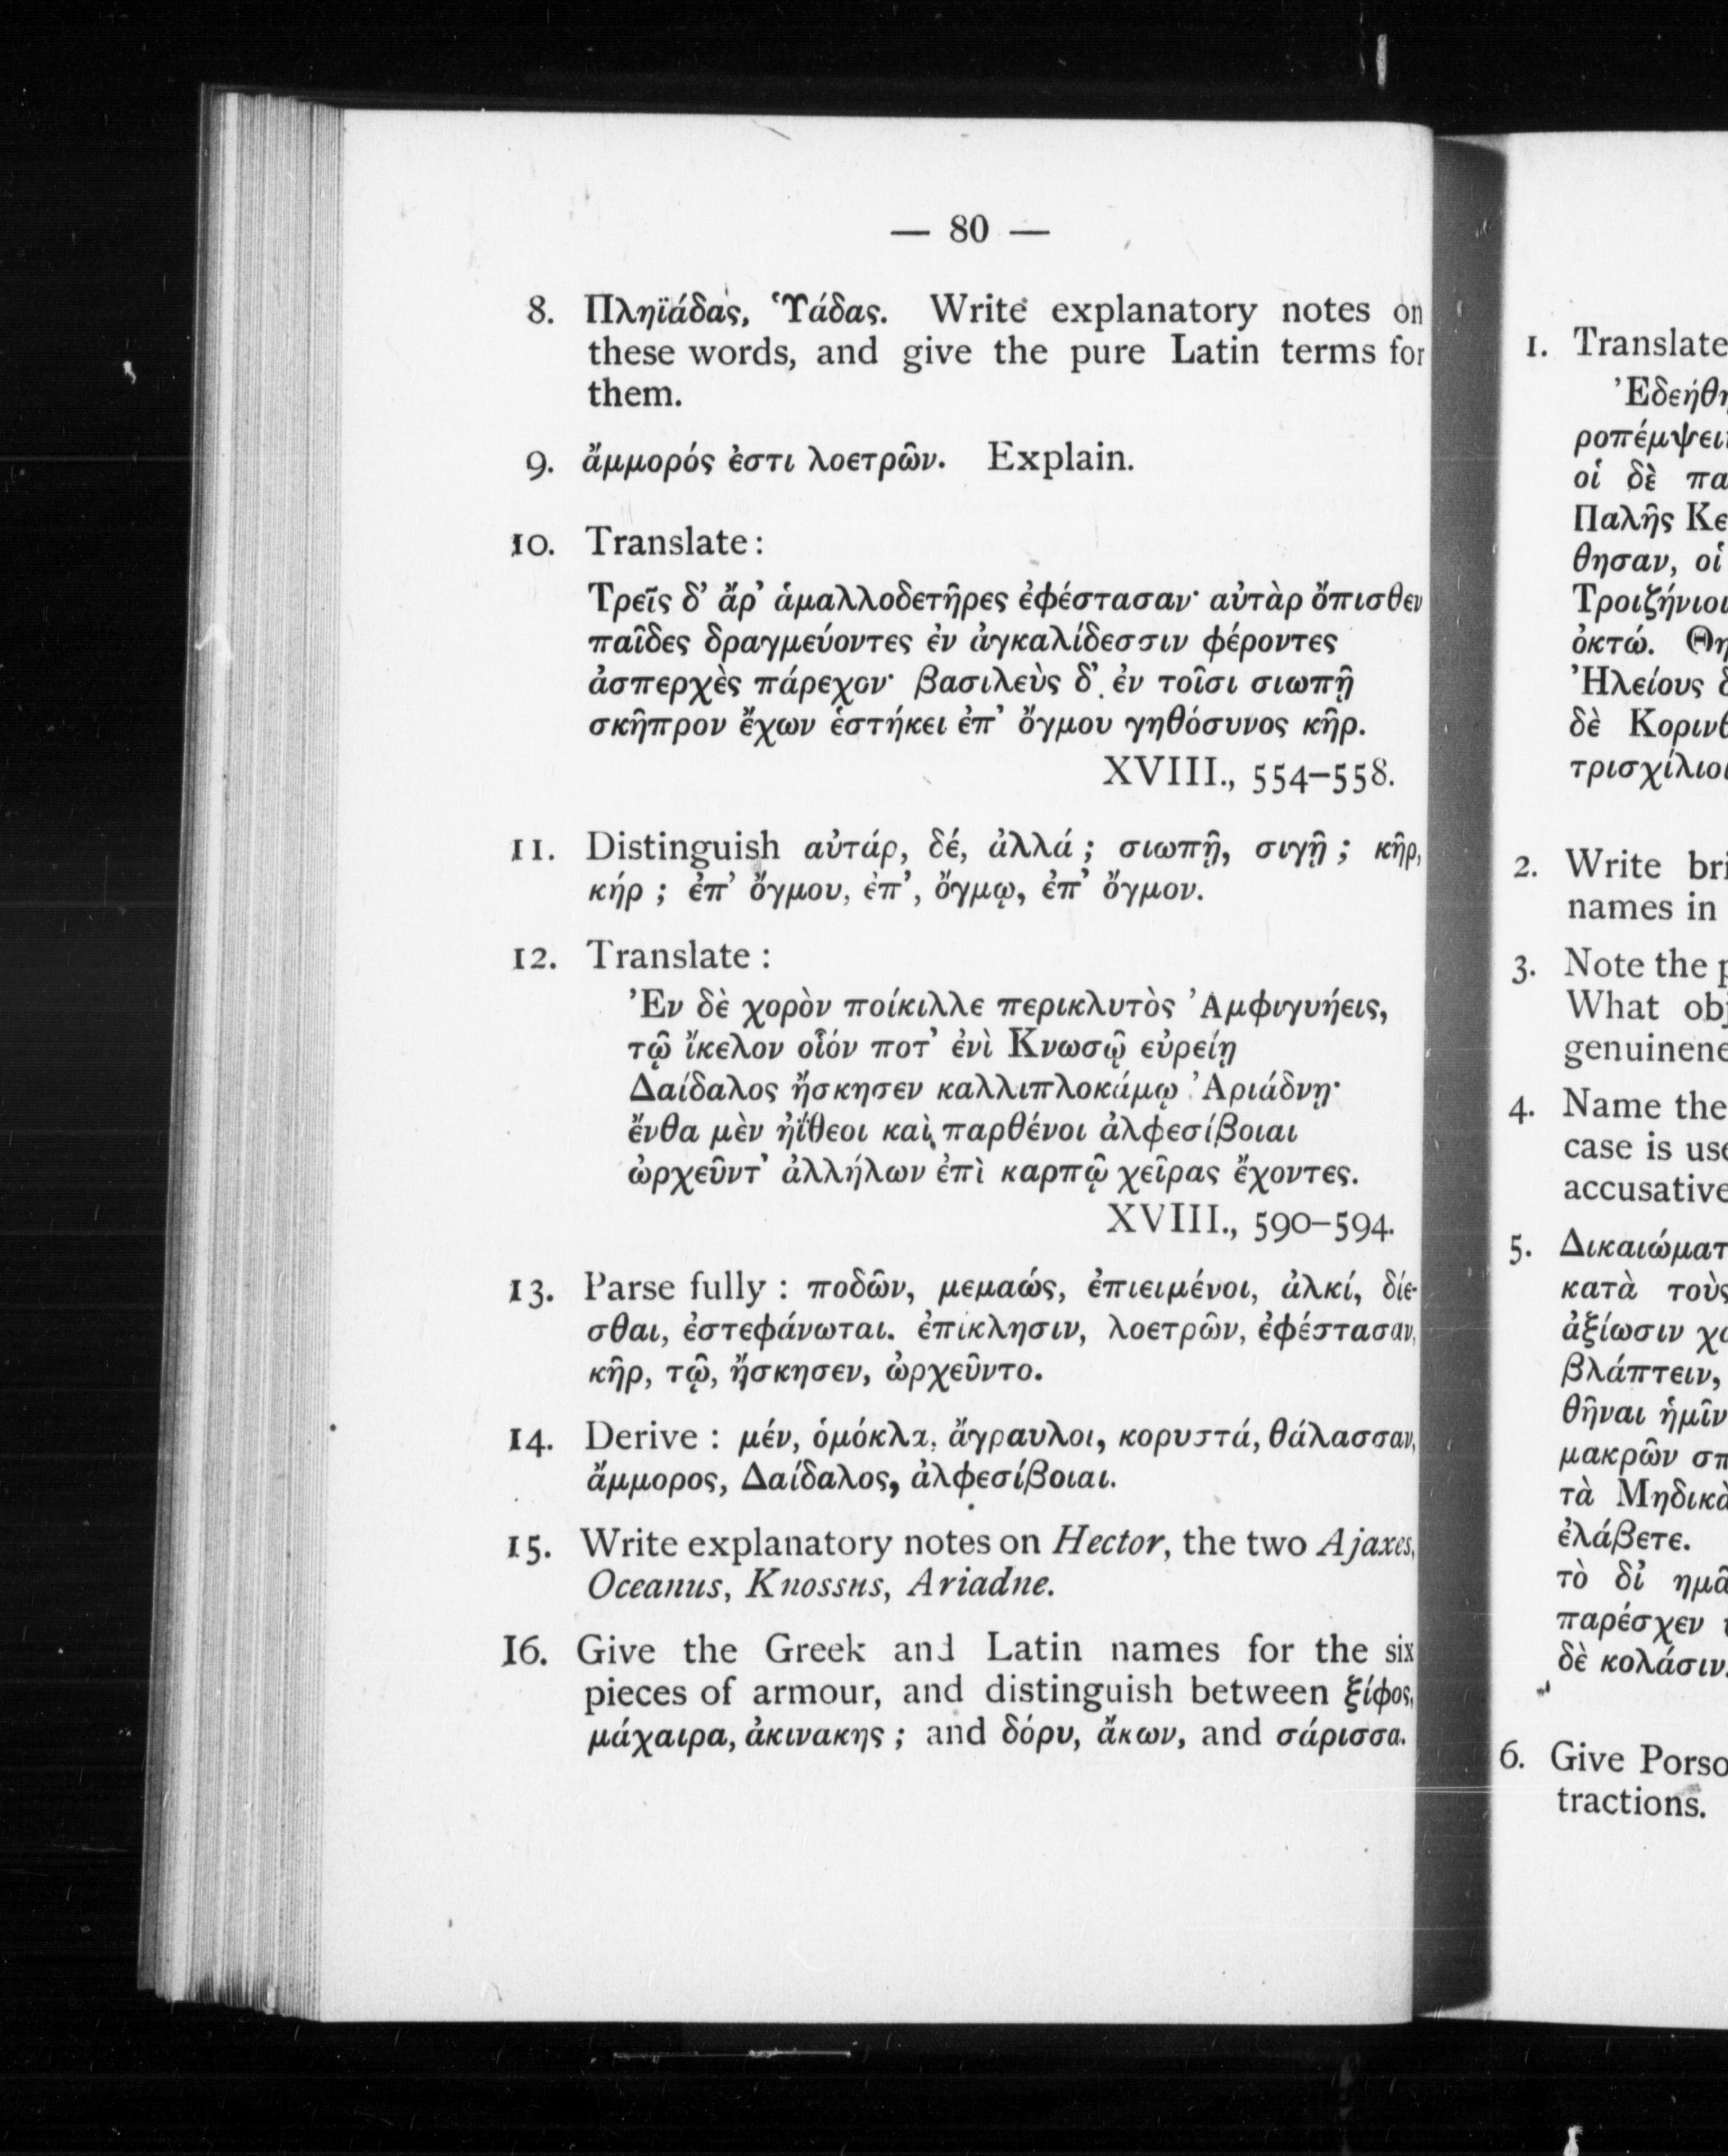 — 80 —
8. Πληϊάδας, Ὑάδας. Write explanatory notes on
these words, and give the pure Latin terms for
them.
9. ἄμμορός ἐστι λοετρῶν. Explain.
10. Translate:
Τρεῖς δ’ ἄρ’ ἁμαλλοδετῆρες ἐφέστασαν· αὐτὰρ ὄπισθεν
παῖδες δραγμεύοντες ἐν ἀγκαλίδεσσιν φέροντες
ἀσπερχὲς πάρεχον· βασιλεὺς δ’ ἐν τοῖσι σιωπῇ
σκῆπρον ἔχων ἑστήκει ἐπ’ ὄγμου γηθόσυνος κῆρ.
XVIII., 554–558.
11. Distinguish αὐτάρ, δέ, ἀλλά; σιωπῇ, σιγῇ; κῆρ,
κήρ; ἐπ’ ὄγμου, ἐπ’, ὄγμῳ, ἐπ’ ὄγμον.
12. Translate:
Ἐν δὲ χορὸν ποίκιλλε περικλυτὸς Ἀμφιγυήεις,
τῷ ἴκελον οἷόν ποτ’ ἐνὶ Κνωσῷ εὐρείῃ
Δαίδαλος ἤσκησεν καλλιπλοκάμῳ Ἀριάδνῃ·
ἔνθα μὲν ἠΐθεοι καὶ παρθένοι ἀλφεσίβοιαι
ὠρχεῦντ’ ἀλλήλων ἐπὶ καρπῷ χεῖρας ἔχοντες.
XVIII., 590–594.
13. Parse fully: ποδῶν, μεμαώς, ἐπιειμένοι, ἀλκί, δίε-
σθαι, ἐστεφάνωται. ἐπίκλησιν, λοετρῶν, ἐφέστασαν,
κῆρ, τῷ, ἤσκησεν, ὠρχεῦντο.
14. Derive: μέν, ὁμόκλα, ἄγραυλοι, κορυστά, θάλασσαν,
ἄμμορος, Δαίδαλος, ἀλφεσίβοιαι.
15. Write explanatory notes on Hector, the two Ajaxes,
Oceanus, Knossus, Ariadne.
16. Give the Greek and Latin names for the six
pieces of armour, and distinguish between ξίφος,
μάχαιρα, ἀκινακης; and δόρυ, ἄκων, and σάρισσα.
1. Translate
Ἐδεήθη
ροπέμψει
οἱ δὲ πα
Παλῆς Κε
θησαν, οἱ
Τροιζήνιοι
ὀκτώ. Θη
Ἠλείους
δὲ Κορινθ
τρισχίλιοι
2. Write bri
names in
3. Note the
What obj
genuinene
4. Name the
case is use
accusative
5. Δικαιώματ
κατὰ τοὺς
ἀξίωσιν χα
βλάπτειν,
θῆναι ἡμῖν
μακρῶν σπ
τὰ Μηδικὰ
ἐλάβετε.
τὸ δἰ ημᾶ
παρέσχεν
δὲ κολάσιν.
6. Give Porso
tractions.